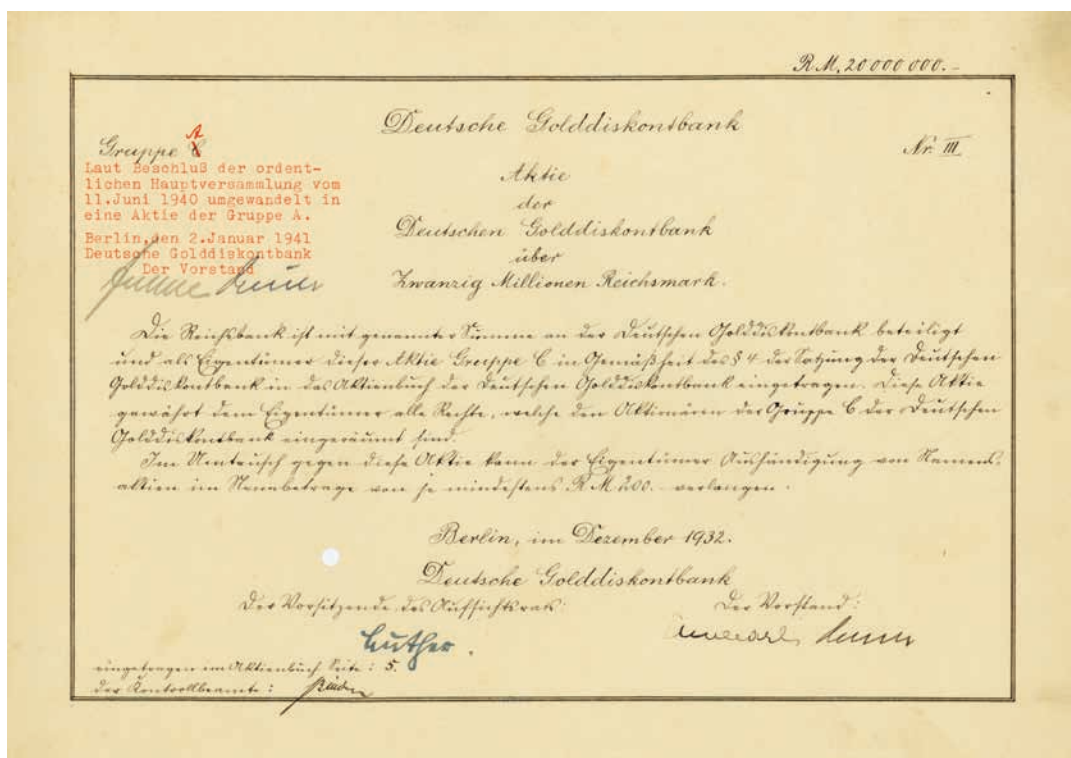 R.M. 20 000 000.-
Deutsche Golddiskontbank
Gruppe C A
Nr. III
Laut Beschluß der ordent-
lichen Hauptversammlung vom
11.Juni 1940 umgewandelt in
eine Aktie der Gruppe A.
Berlin,den 2.Januar 1941
Deutsche Golddiskontbank
Der Vorstand
Aktie
der
Deutschen Golddiskontbank
über
Zwanzig Millionen Reichsmark.
Die Reichsbank ist mit genannter Summe an der Deutschen Golddiskontbank beteiligt
und als Eigentümer dieser Aktie Gruppe C in Gemäßheit des § 4 der Satzung der Deutschen
Golddiskontbank in das Aktienbuch der Deutschen Golddiskontbank eingetragen. Diese Aktie
gewährt dem Eigentümer alle Rechte, welche den Aktionären der Gruppe C der Deutschen
Golddiskontbank eingeräumt sind.
Im Umtausch gegen diese Aktie kann der Eigentümer Aushändigung von Namens-
aktien im Nennbetrage von je mindestens R.M 200.- verlangen.
Berlin, im Dezember 1932.
Deutsche Golddiskontbank
Der Vorsitzende des Aufsichtsrats:
Der Vorstand:
Luther.
eingetragen im Aktienbuch Seite: 5.
der Kontrollbeamte: